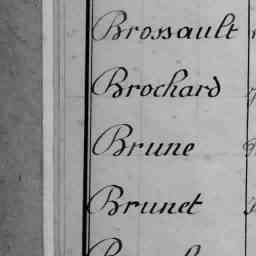 Brossault
Brochard
Brune
Brunet